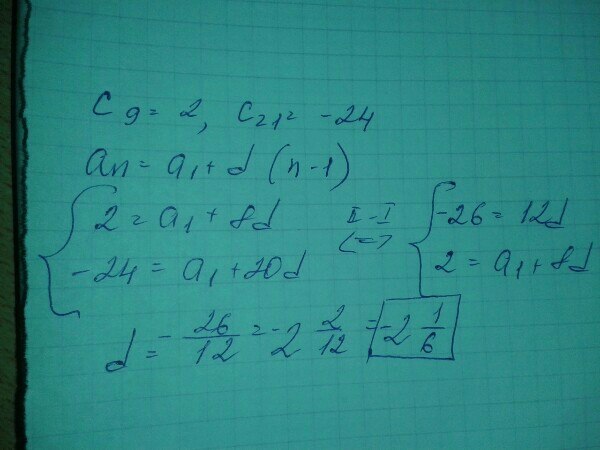 c₉ = 2, c₂₁ = -24
aₙ = a₁ + d (n-1)
{ 2 = a₁ + 8d
-24 = a₁ + 20d
II - I
<=>
{ -26 = 12d
2 = a₁ + 8d
d = -26/12 = -2 2/12 = -2 1/6